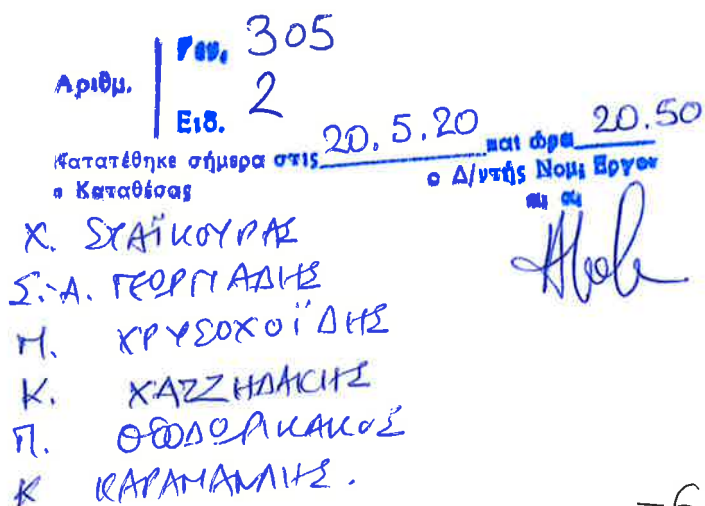 Αριθμ.
Γεν. 305
Ειδ. 2
Κατατέθηκε σήμερα στις 20.5.20 και ώρα 20.50
ο Καταθέσας ο Δ/ντής Νομ. Εργου
Χ. ΣΤΑΪΚΟΥΡΑΣ
Σ.-Α. ΓΕΩΡΓΙΑΔΗΣ
Μ. ΧΡΥΣΟΧΟΪΔΗΣ
Κ. ΧΑΤΖΗΔΑΚΗΣ
Π. ΘΕΟΔΩΡΙΚΑΚΟΣ
Κ ΚΑΡΑΜΑΝΛΗΣ.